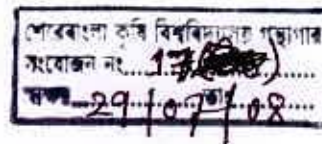 শেরেবাংলা কৃষি বিশ্ববিদ্যালয় গ্রন্থাগার
সংযোজন নং 17
29/07/08